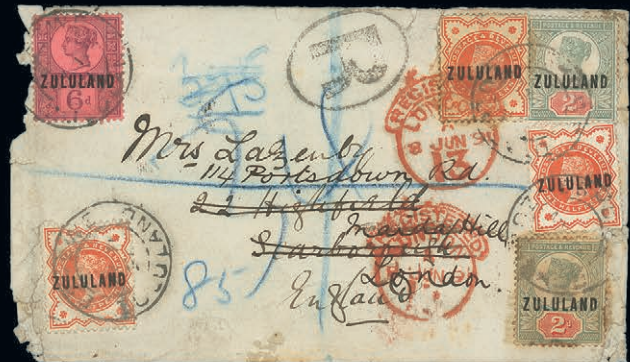 ZULULAND
6d
R
ZULULAND
ZULULAND
2d
REGIS
LON
8 JUN 9
ZULULAND
Mrs Lazenby
114 Portsdown Rd
22 Highfield
Maida Hill
Scarborough
London.
England
85
ZULULAND
POSTAGE & REVENUE
ZULULAND
2d